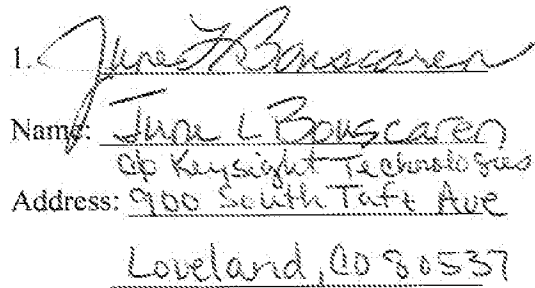 1. June L Bouscaren
Name: June L Bouscaren
c/o Keysight Technologies
Address: 900 South Taft Ave
Loveland, CO 80537